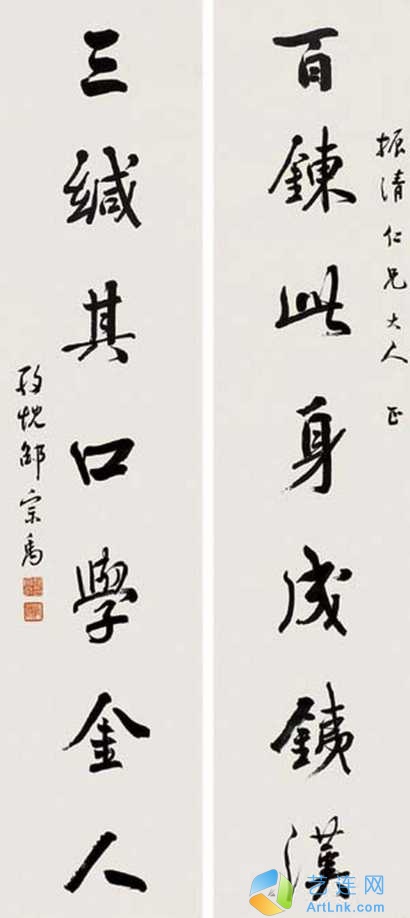 振清仁兄大人 正
百鍊此身成銕漢
三緘其口學金人
忱邵宗禹
艺连网
ArtLnk.com